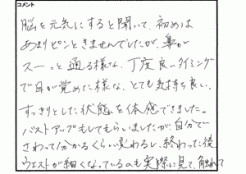 コメント
脳を元気にすると聞いて、初めは
あまりピンときませんでしたが、鼻が
スーっと通る様な、丁度良いタイミング
で目が覚めた様な、とても気持ち良い、
すっきりとした状態を体感できました。
バストアップもしてもらいましたが、自分で
さわって分かるくらい変わるし、終わって後
ウエストが細くなっているのも実際に見て、触れて